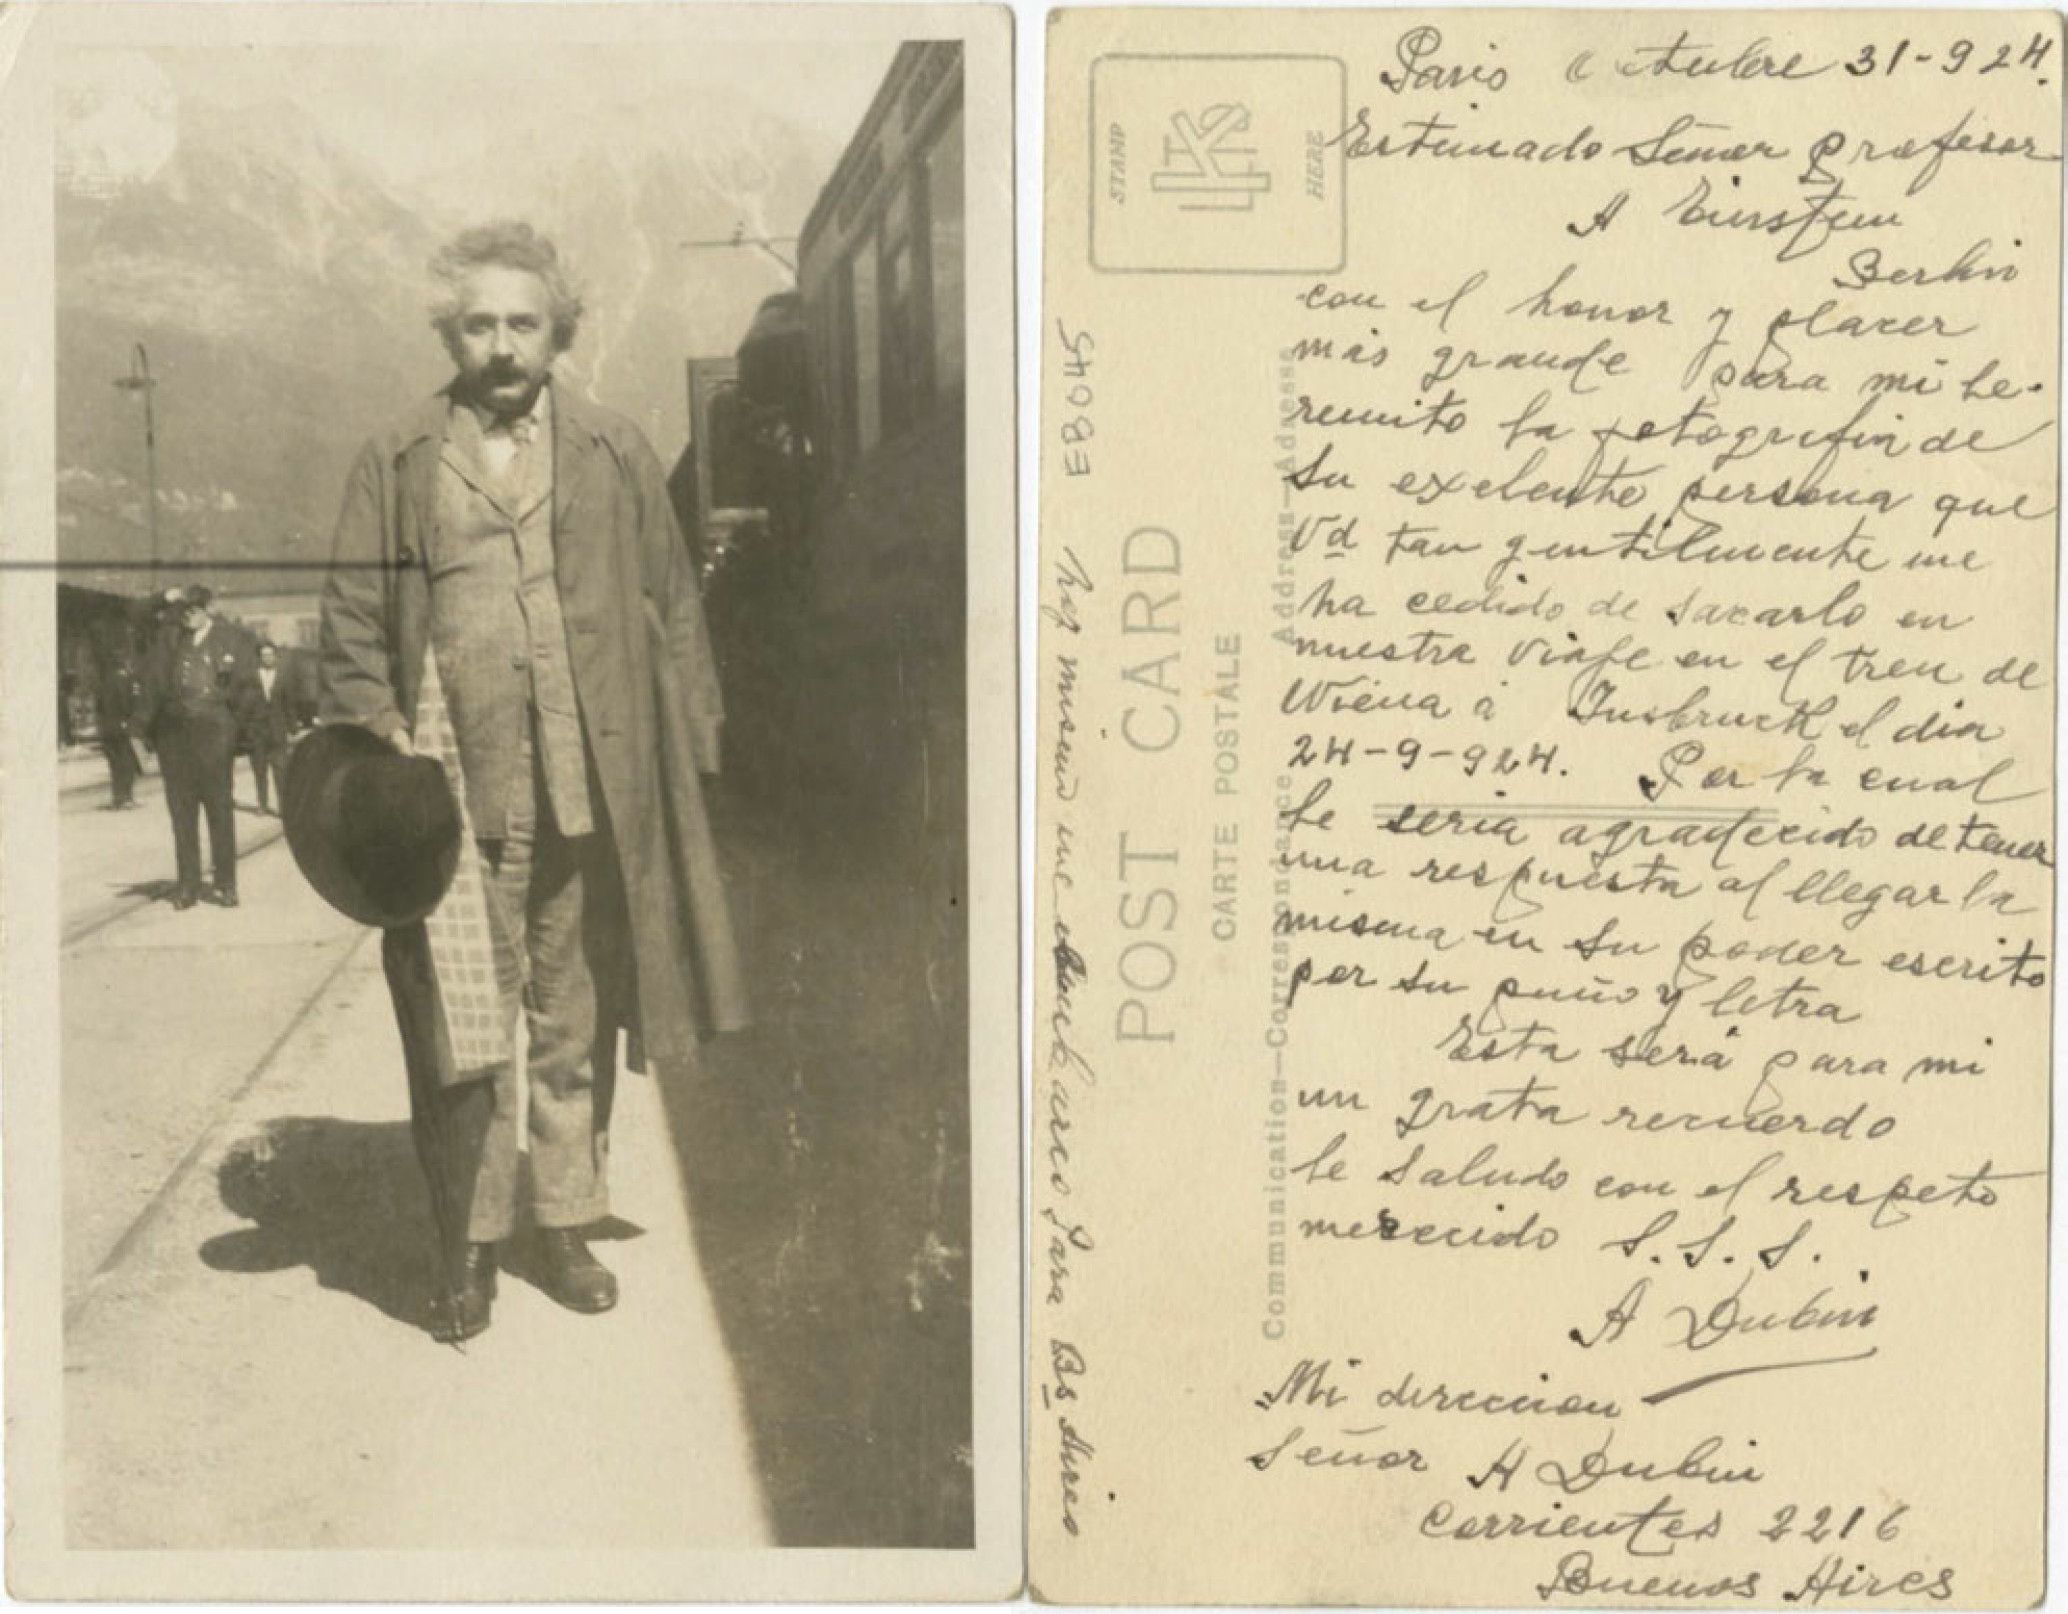 Paris Octubre 31-924.
Estimado Señor profesor
A Einstein
Berlin
con el honor y placer
más grande para mi le
remito la fotografia de
su exelente persona que
Vd tan gentilmente me
ha cedido de sacarlo en
nuestra viaje en el tren de
Wiena á Insbruck el dia
24-9-924. Por la cual
le seria agradecido de tener
una respuesta al llegar la
misma en su poder escrito
por su puño y letra
Esta será para mi
un grata recuerdo
le saludo con el respeto
merecido S. S. S.
A Dubin
Mi direccion
Señor A Dubin
Corrientes 2216
Buenos Aires
STAMP
HERE
POST CARD
CARTE POSTALE
Communication—Correspondance
Address—Adresse
hoy mismo me para Bs Aires